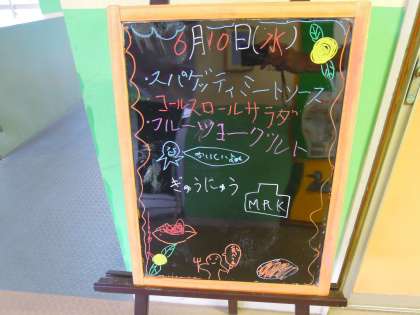 6月10日(水)
・スパゲッティミートソース
コールスロールサラダ
・フルーツヨーグルト
ぎゅうにゅう
MRK